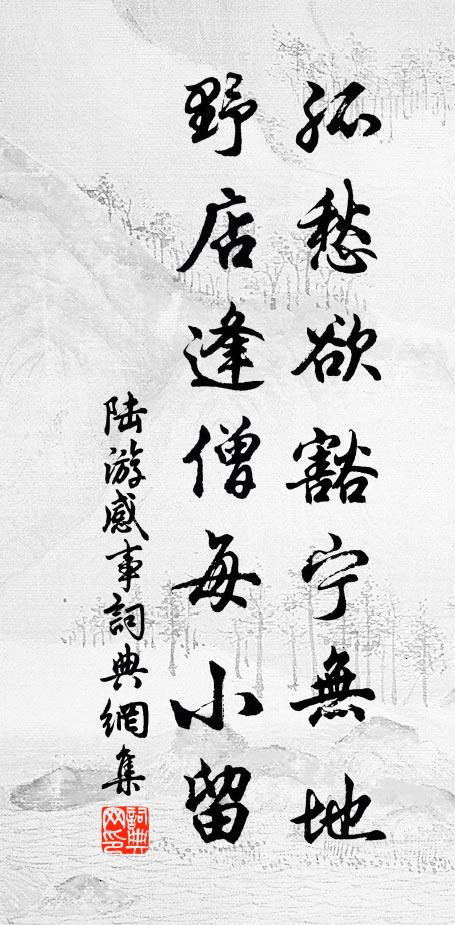 孤愁欲豁宁無地
野店逢僧每小留
陆游感事詞典網集
詞典网印